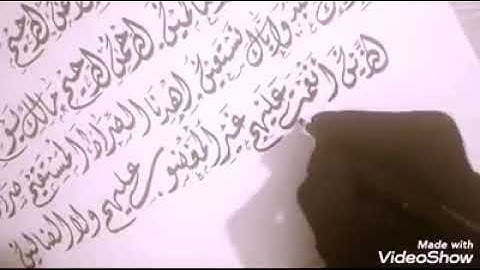 الرحمن الرحيم
لمين الرحمن الرحيم مالك يو
بد وإياك نستعين اهدنا الصراط المستقيم صرا
الذين أنعمت عليهم غير المغضوب عليهم ولا الضالين
Made with
VideoShow